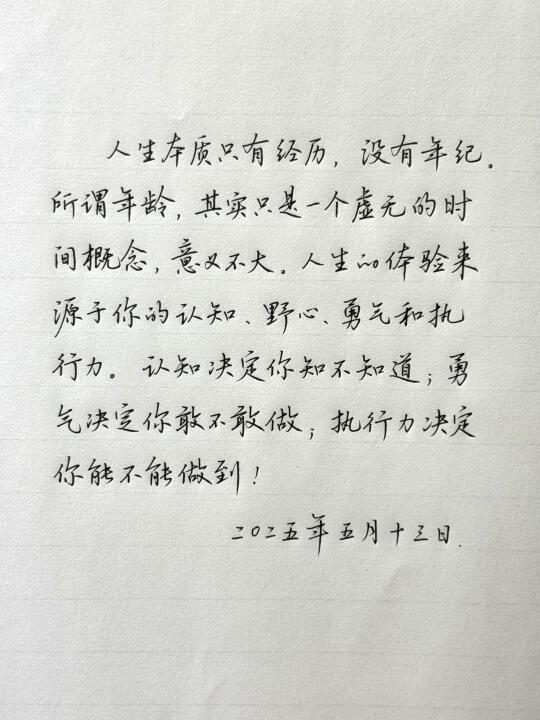 人生本质只有经历，没有年纪。
所谓年龄，其实只是一个虚无的时
间概念，意义不大。人生的体验来
源于你的认知、野心、勇气和执
行力。认知决定你知不知道；勇
气决定你敢不敢做；执行力决定
你能不能做到！
二〇二五年五月十三日.